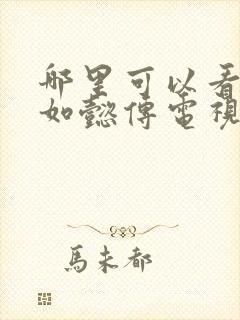 那里可以看
如懿傳電視
馬未都